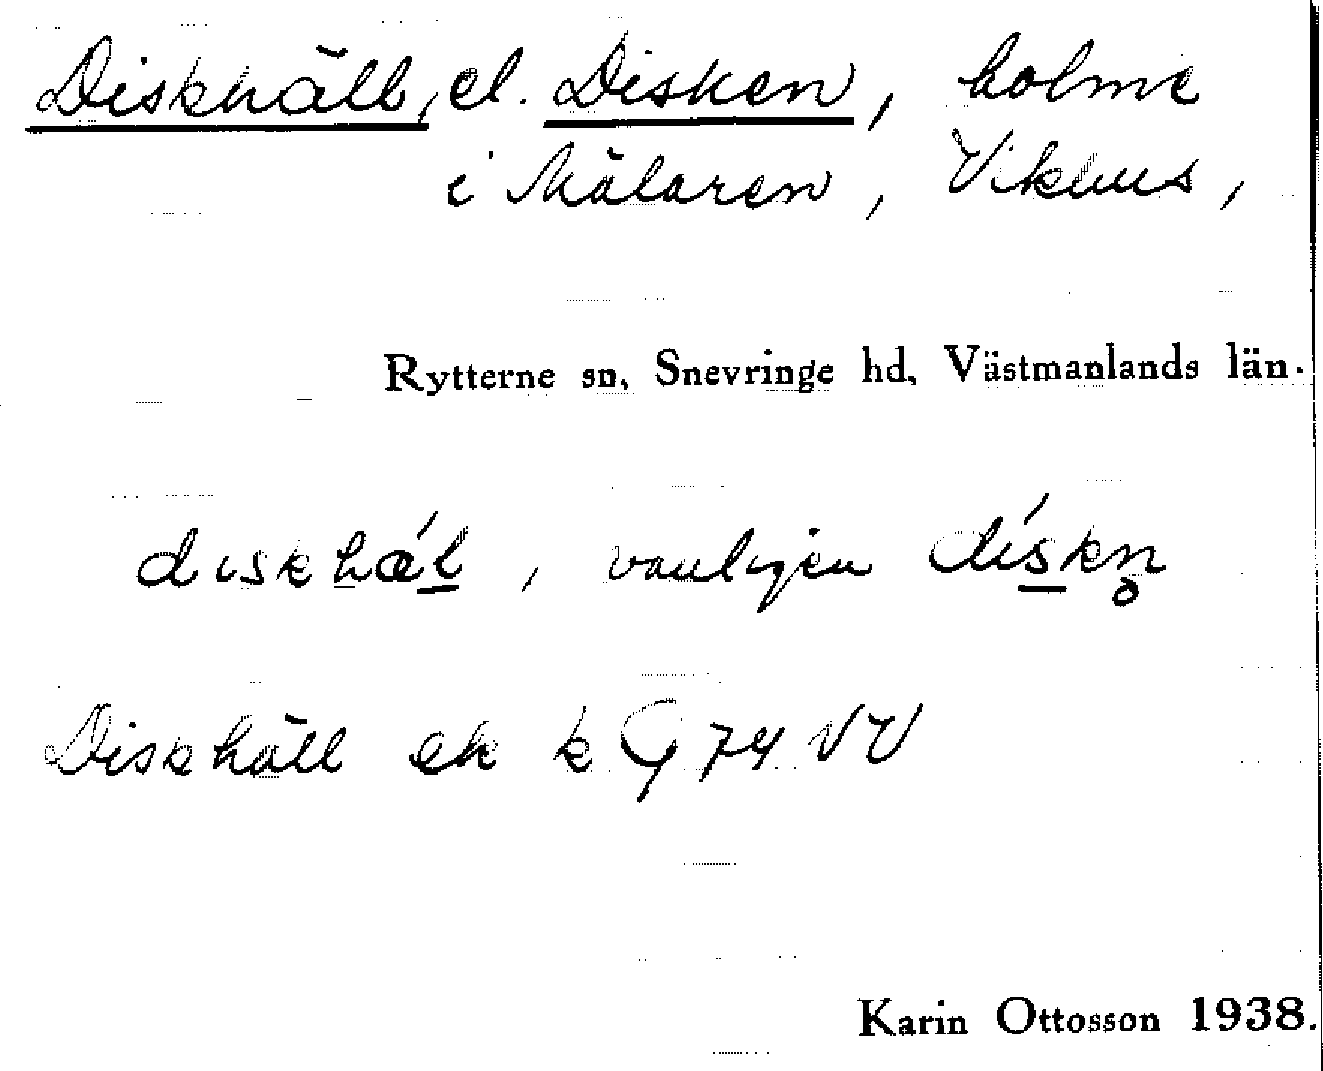 Diskhäll, el. Disken, holme
i Mälaren, Vikhus,
Rytterne sn, Snevringe hd, Västmanlands län.
diskhǽl, vanligen dískn̥
Diskhäll ek k G 74 VV
Karin Ottosson 1938.